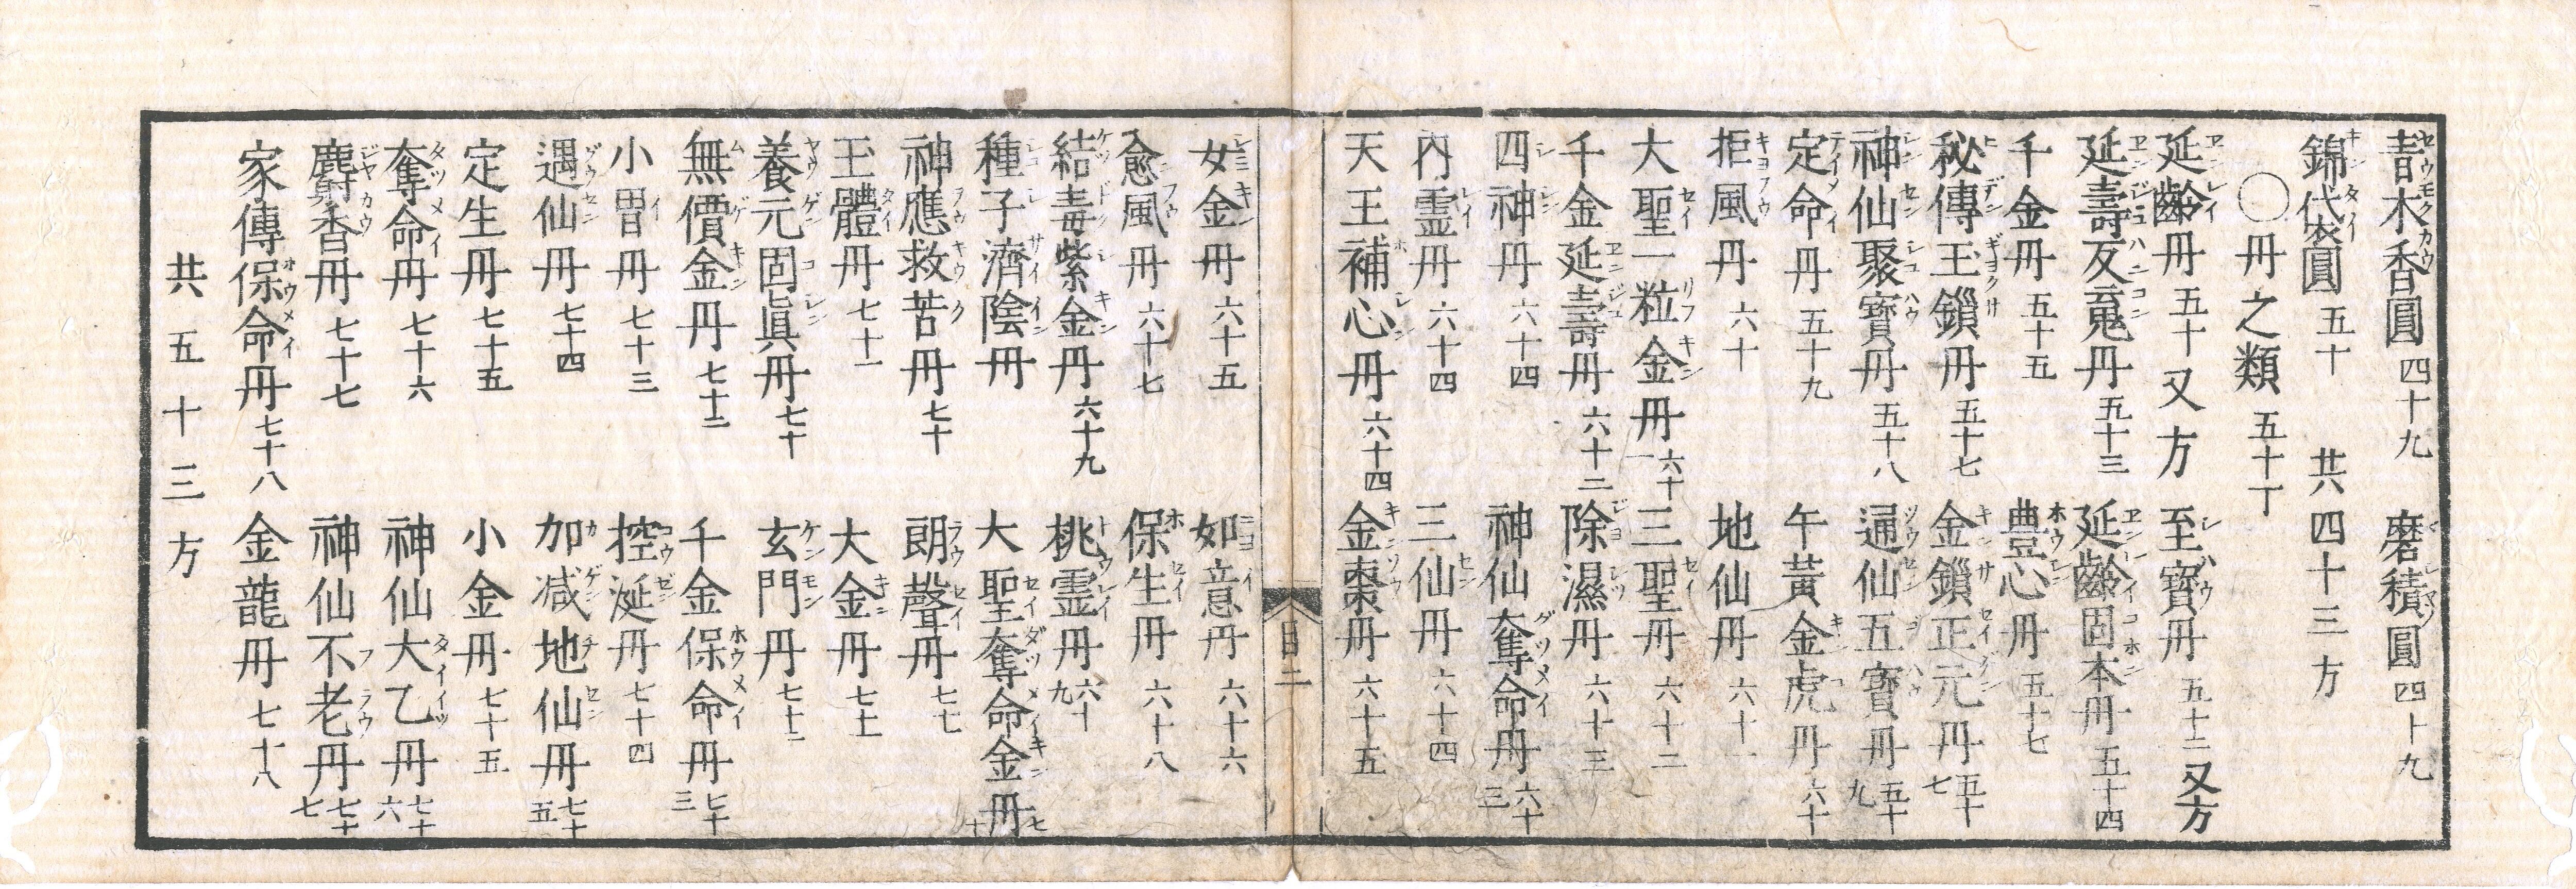 青木香圓 四十九 磨積圓 四十九
錦袋圓 五十 共四十三方
○丹之類 五十丁
延齡丹 五十 又方 至寶丹 五十二 又方
延壽反䰟丹 五十三 延齡固本丹 五十四
千金丹 五十五 豊心丹 五十七
秘傳玉鎖丹 五十七 金鎖正元丹 五十七
神仙聚寳丹 五十八 通仙五寳丹 五十九
定命丹 五十九 午黃金虎丹 六十
拒風丹 六十 地仙丹 六十一
大聖一粒金丹 六十一 三聖丹 六十二
千金延壽丹 六十二 除濕丹 六十三
四神丹 六十四 神仙奪命丹 六十三
内霊丹 六十四 三仙丹 六十四
天王補心丹 六十四 金棗丹 六十五
目二
女金丹 六十五 如意丹 六十六
愈風丹 六十七 保生丹 六十八
結毒紫金丹 六十九 桃霊丹 六十九
種子濟陰丹 大聖奪命金丹 七十
神應救苦丹 七十 朗聲丹 七七
玉體丹 七十一 大金丹 七十一
養元固眞丹 七十 玄門丹 七十二
無價金丹 七十二 千金保命丹 七十三
小胃丹 七十三 控涎丹 七十四
遇仙丹 七十四 加減地仙丹 七十五
定生丹 七十五 小金丹 七十五
奪命丹 七十六 神仙大乙丹 七十六
麝香丹 七十七 神仙不老丹 七十七
家傳保命丹 七十八 金龍丹 七十八
共五十三方